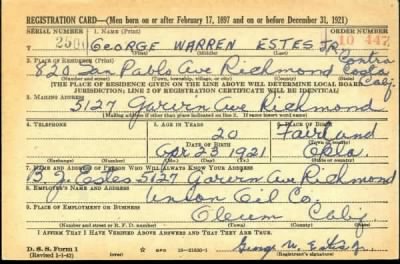 REGISTRATION CARD—(Men born on or after February 17, 1897 and on or before December 31, 1921)
SERIAL NUMBER 1. NAME (Print) ORDER NUMBER
250 GEORGE WARREN ESTES JR. 10 447
2. PLACE OF RESIDENCE (Print) Contra
820 San Pablo Ave Richmond Costa Calif.
(Number and street) (Town, township, village, or city) (County) (State)
[THE PLACE OF RESIDENCE GIVEN ON THE LINE ABOVE WILL DETERMINE LOCAL BOARD
JURISDICTION; LINE 2 OF REGISTRATION CERTIFICATE WILL BE IDENTICAL]
3. MAILING ADDRESS
5127 Garvin Ave Richmond
[Mailing address if other than place indicated on line 2. If same insert word same]
4. TELEPHONE 5. AGE IN YEARS 6. PLACE OF BIRTH
20 Fairland
DATE OF BIRTH
Apr 23 1921 Okla
(Exchange) (Number) (Mo.) (Day) (Yr.) (State or country)
7. NAME AND ADDRESS OF PERSON WHO WILL ALWAYS KNOW YOUR ADDRESS
Estes 5127 Garvin Ave Richmond
8. EMPLOYER'S NAME AND ADDRESS
Union Oil Co.
9. PLACE OF EMPLOYMENT OR BUSINESS
Oleum Calif
(Number and street or R. F. D. number) (Town) (County) (State)
I AFFIRM THAT I HAVE VERIFIED ABOVE ANSWERS AND THAT THEY ARE TRUE.
D. S. S. Form 1
(Revised 1-1-42) GPO